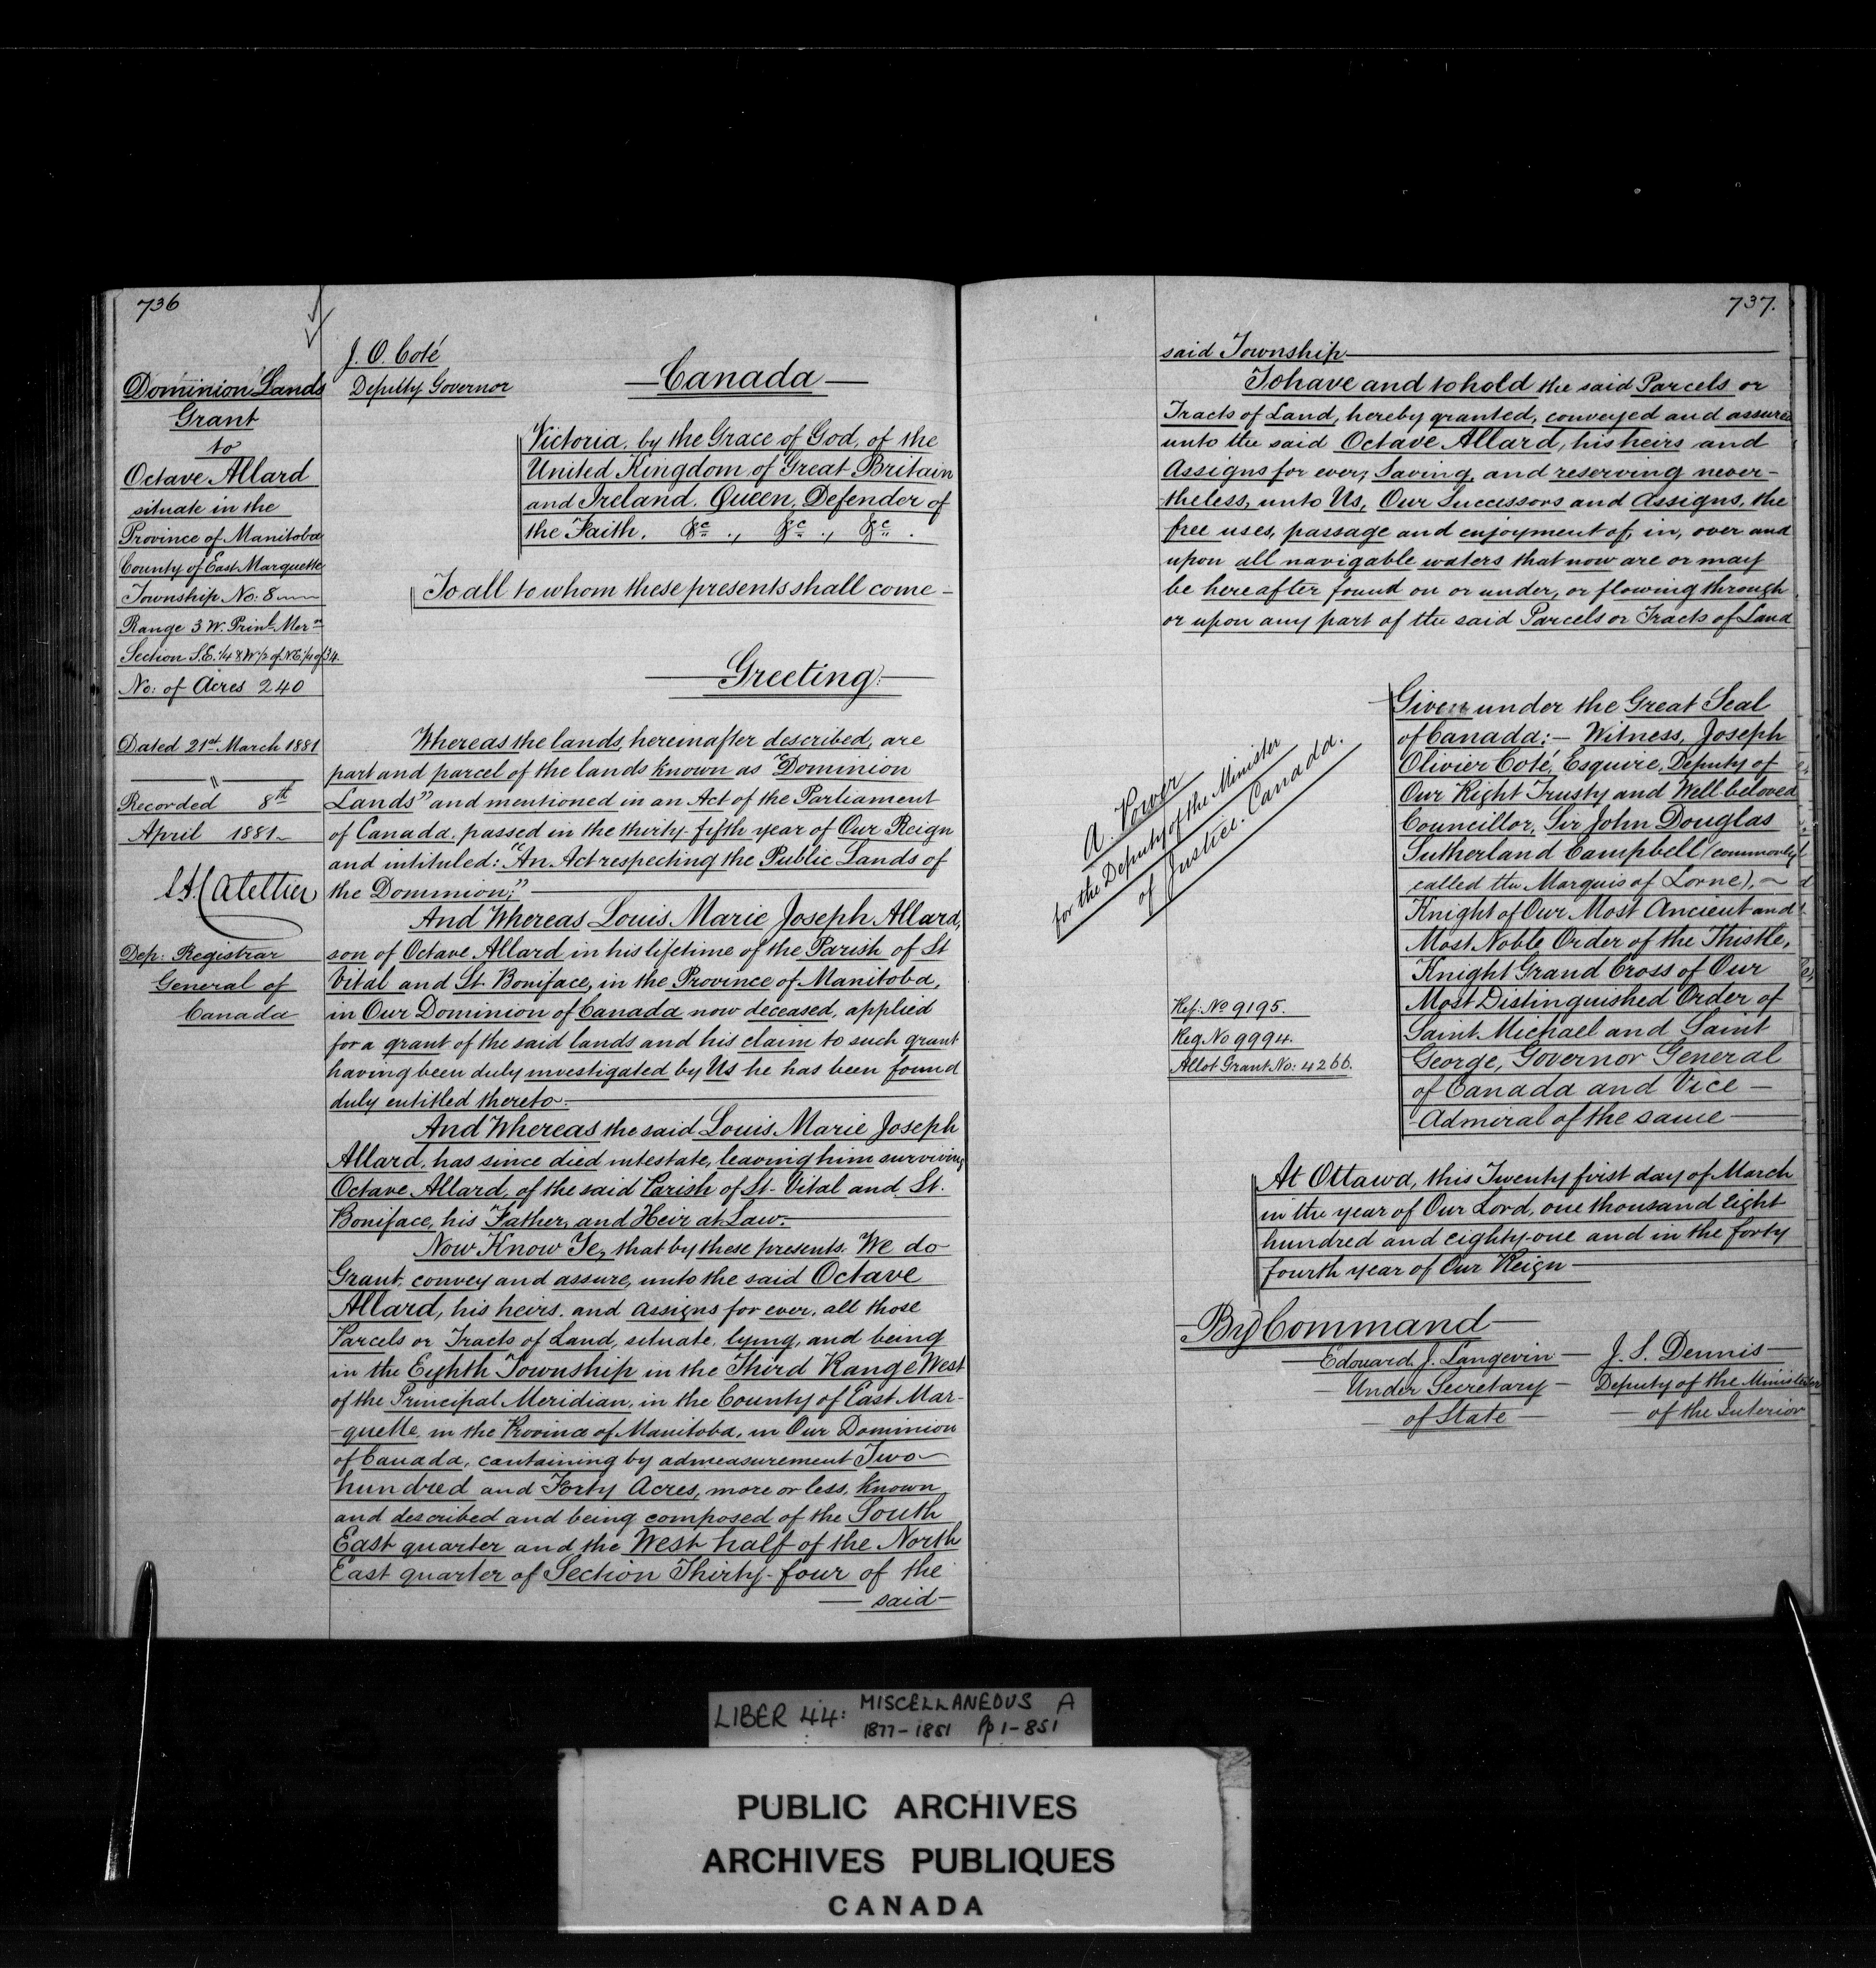 736
Dominion Lands
Grant
to
Octave Allard
situate in the
Province of Manitoba
County of East Marquette
Township No: 8
Range 3 W. Prinl. Mer.
Section S.E. 1/4 & W 1/2 of N.E 1/4 of 34.
No: of Acres 240
Dated 21st March 1881
"
Recorded 8th
April 1881
Dep: Registrar
General of
Canada
J. O. Coté
Deputy Governor
Canada
Victoria, by the Grace of God, of the
United Kingdom of Great Britain
and Ireland. Queen, Defender of
the Faith. &c ., &c ., &c .
To all to whom these presents shall come -
Greeting:
Whereas the lands, hereinafter described, are
part and parcel of the lands known as "Dominion
Lands" and mentioned in an Act of the Parliament
of Canada, passed in the thirty-fifth year of Our Reign
and intituled: "An Act respecting the Public Lands of
the Dominion;"
And Whereas Louis Marie Joseph Allard,
son of Octave Allard in his lifetime of the Parish of St
Vital and St. Boniface, in the Province of Manitoba,
in Our Dominion of Canada now deceased, applied
for a grant of the said lands and his claim to such grant
having been duly investigated by Us he has been found
duly entitled thereto.
And Whereas the said Louis Marie Joseph
Allard, has since died intestate, leaving him surviving
Octave Allard, of the said Parish of St. Vital and St.
Boniface, his Father, and Heir at Law.
Now Know Ye, that by these presents. We do
Grant, convey and assure, unto the said Octave
Allard, his heirs, and assigns for ever, all those
Parcels or Tracts of Land, situate, lying, and being
in the Eighth Township in the Third Range West
of the Principal Meridian, in the County of East Mar-
-quette, in the Province of Manitoba, in Our Dominion
of Canada, containing by admeasurement Two
hundred and Forty Acres, more or less, known
and described and being composed of the South
East quarter and the West half of the North
East quarter of Section Thirty-four of the
said
737.
said Township
To have and to hold the said Parcels or
Tracts of Land, hereby granted, conveyed and assured
unto the said Octave Allard, his heirs and
Assigns for ever; Saving, and reserving never-
-theless, unto Us, Our Successors and Assigns, the
free uses, passage and enjoyment of, in, over and
upon all navigable waters that now are or may
be hereafter found on or under, or flowing through
or upon any part of the said Parcels or Tracts of Land
A. Power
for the Deputy of the Minister
of Justice. Canada.
Given under the Great Seal
of Canada: - Witness, Joseph
Olivier Coté, Esquire, Deputy of
Our Right Trusty and Well beloved
Councillor, Sir John Douglas
Sutherland Campbell (commonly
called the Marquis of Lorne),
Knight of Our Most Ancient and
Most Noble Order of the Thistle,
Knight Grand Cross of Our
Most Distinguished Order of
Saint Michael and Saint
George, Governor General
of Canada and Vice -
-Admiral of the same
Ref: No 9195.
Reg. No 9994.
Allot Grant No: 4266.
At Ottawa, this Twenty first day of March
in the year of Our Lord, one thousand eight
hundred and eighty-one and in the forty
fourth year of Our Reign
By Command
Edouard. J. Langevin
Under Secretary
of State
J. S. Dennis
Deputy of the Minister
of the Interior
LIBER 44: MISCELLANEOUS A
1877-1881 Pp 1-851
PUBLIC ARCHIVES
ARCHIVES PUBLIQUES
CANADA